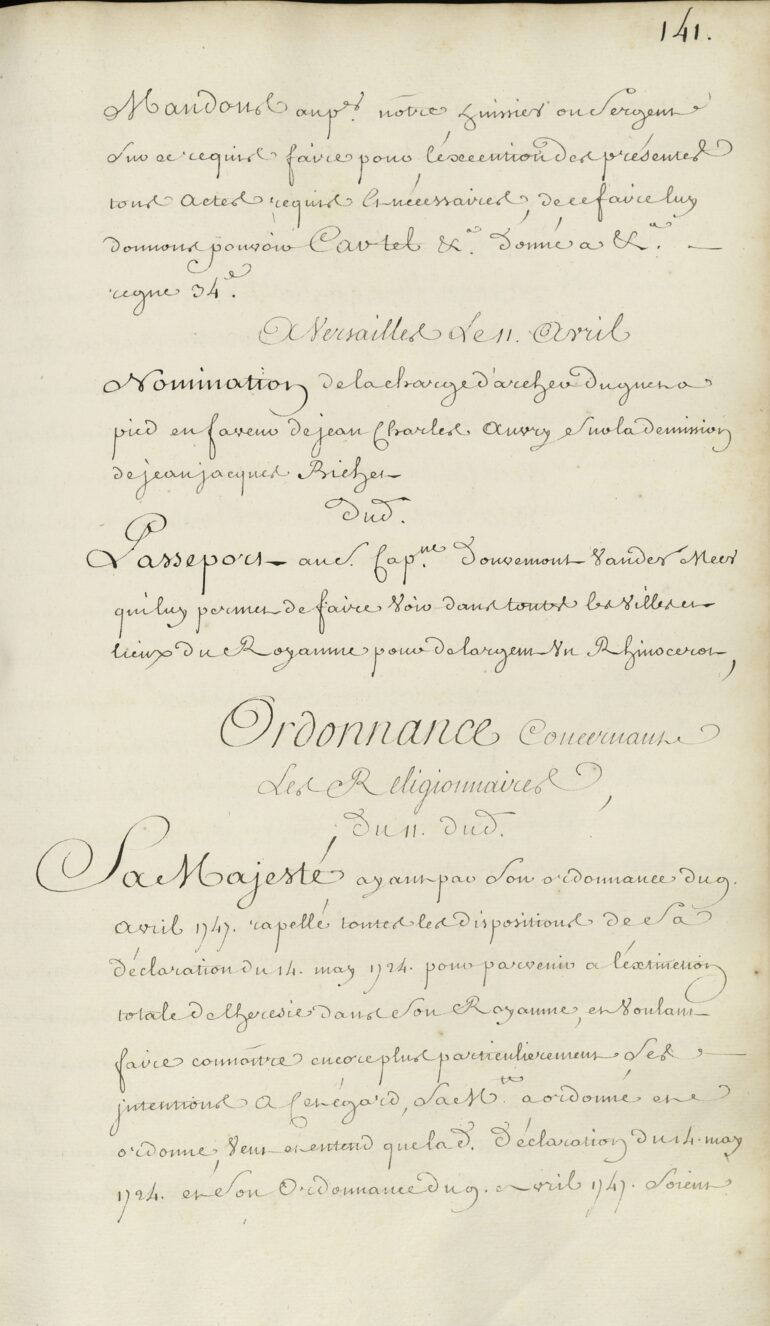 141.
Mandons au per. nôtre huissier ou Sergent
Sur ce requis faire pour l'éxecution des présentes
tous Actes requis et nécessaires, de ce faire luy
donnons pouvoir Cartel &a. donné a &a.
regne 34e.
A Versailles Le 11. Avril
Nomination de la charge d'archer du guet a
pied en faveur de jean Charles Auvry Sur la demission
de jean jacques Richer
dud.
Passeport au S. Capne. Douvemont Vander Meer
qui luy permet de faire voir dans toutes les villes et
lieux du Royaume pour de largent Un Rhinoceros,
Ordonnance Concernant
Les Religionnaires,
du 11. dud.
Sa Majesté ayant par Son ordonnance du 9.
avril 1747. rapellé toutes les dispositions de Sa
déclaration du 14. may 1724. pour parvenir a l'éxtinction
totale de lheresie dans Son Royaume, et Voulant
faire connoître encore plus particulierement Ses
jntentions A Cet égard, Sa Mté. a ordonné et
ordonne, Veut et entend que lad. Déclaration du 14. may
1724. et Son Ordonnance du 9. avril 1747. Soient